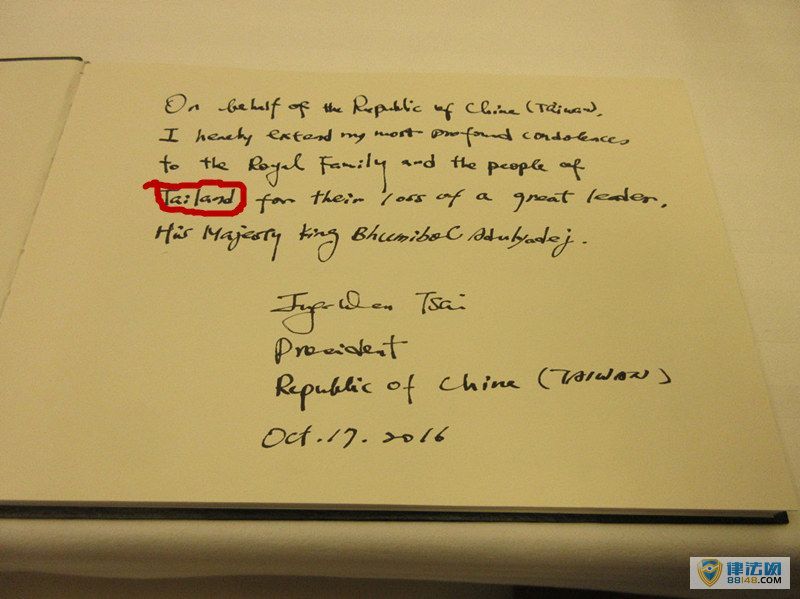 On behalf of the Republic of China (Taiwan),
I hereby extend my most profound condolences
to the Royal Family and the people of
Tailand for their loss of a great leader,
His Majesty King Bhumibol Adulyadej.
Ing-wen Tsai
President
Republic of China (TAIWAN)
Oct. 17. 2016
律法网
88148.COM